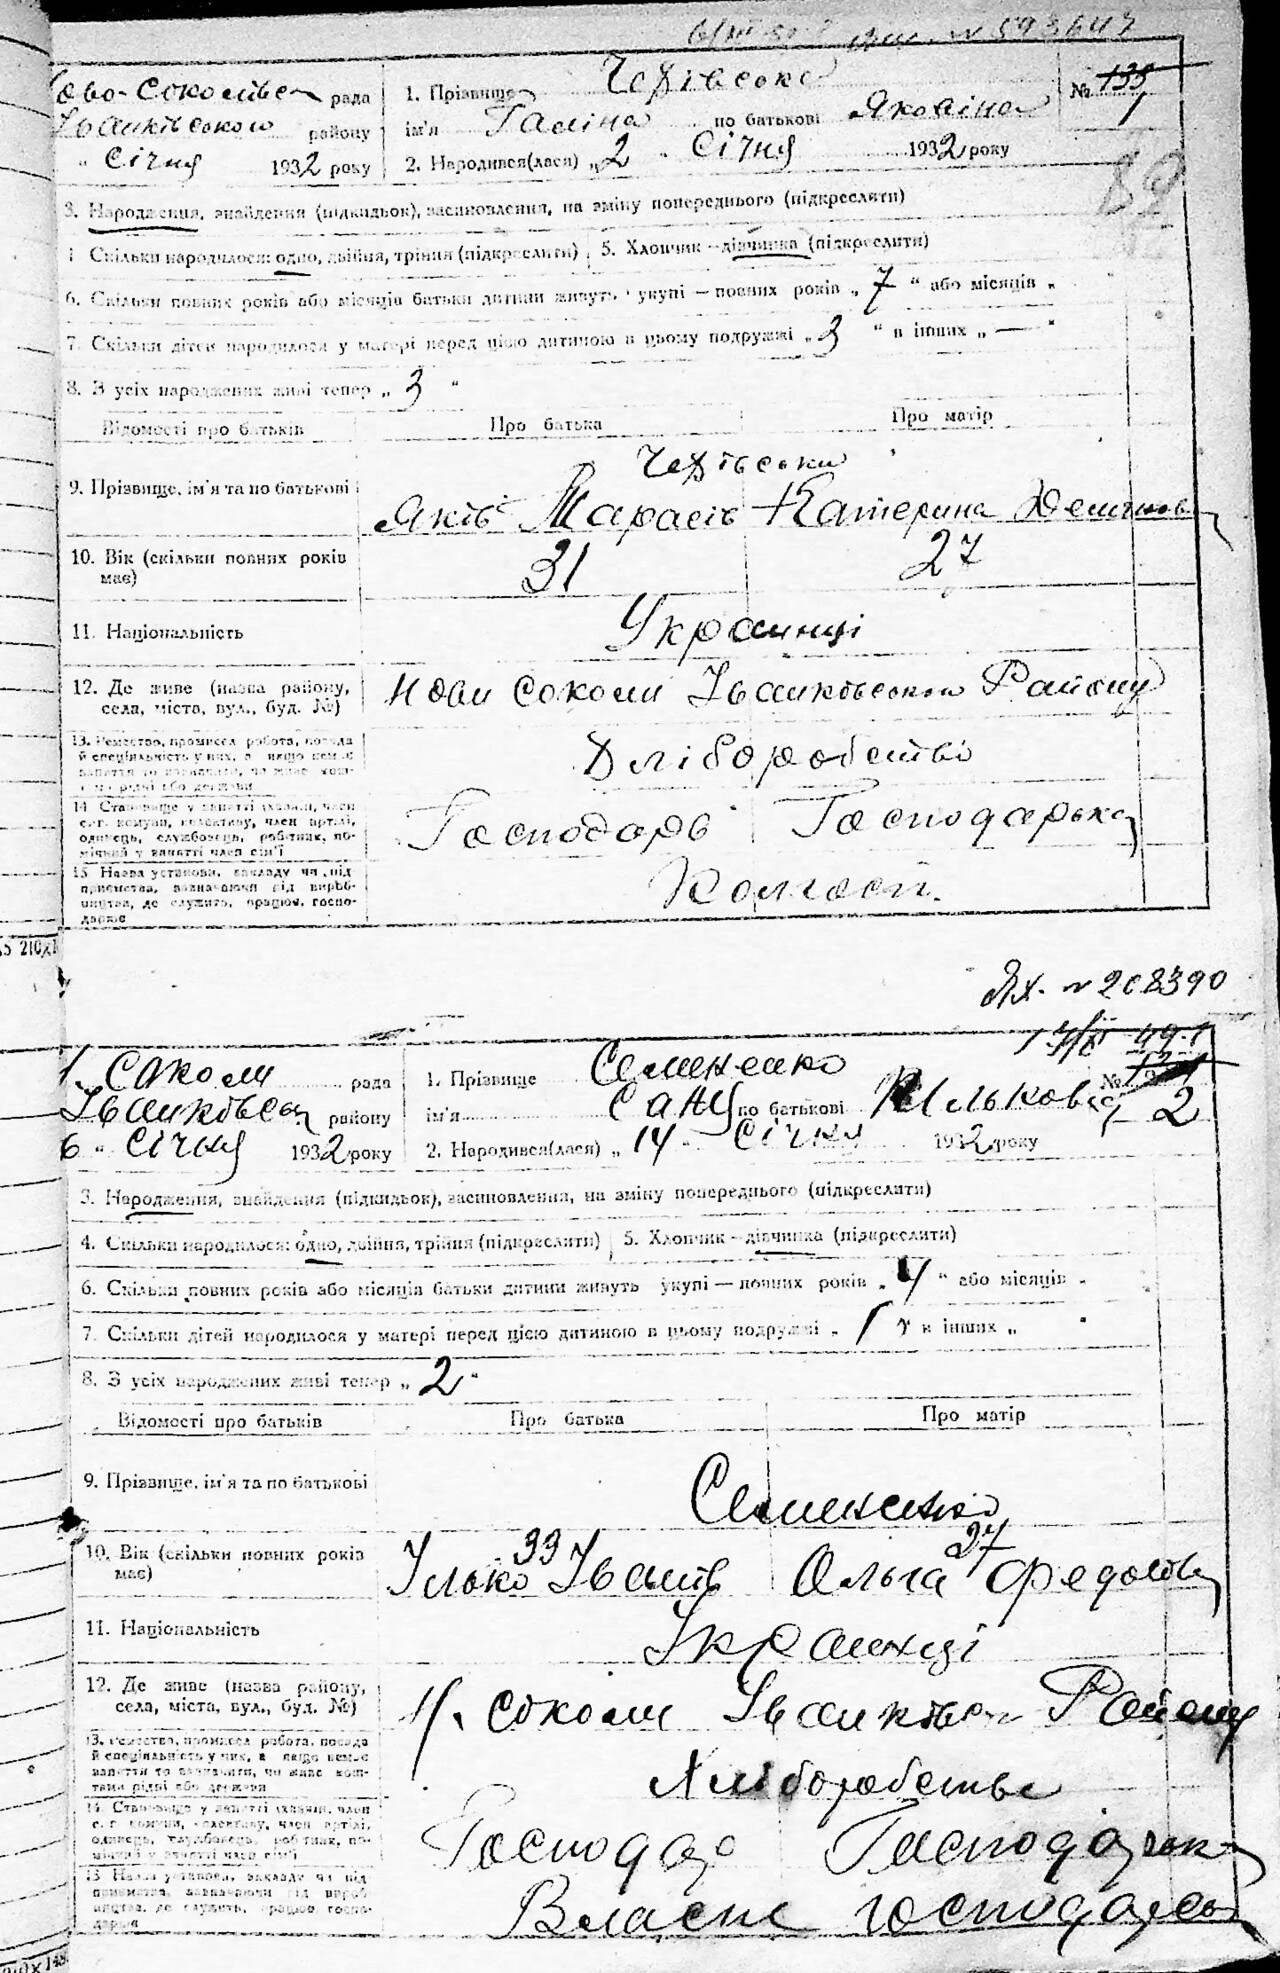 № 135
1
Ново-Соколівсь рада
Іванківського району
" Січня 1932 року
1. Прізвище
ім'я Галіна по батькові Яковіна
2. Народився(лася) „2 " Січня 1932 року
82
3. Народження, знайдення (підкидьок), засиновлення, на зміну попереднього (підкреслити)
4. Скільки народилося: одно, двійня, трійня (підкреслити) 5. Хлопчик – дівчинка (підкреслити)
6. Скільки повних років або місяців батьки дитини живуть укупі — повних років „ 7 " або місяців „
7. Скільки дітей народилося у матері перед цією дитиною в цьому подружжі „ 3 " в інших „ — "
8. З усіх народжених живі тепер „ 3 "
Відомості про батьків Про батька Про матір
9. Прізвище, ім'я та по батькові
Яків Тарасів Катерина
10. Вік (скільки повних років має) 31 27
11. Національність Украинці
12. Де живе (назва району, села, міста, вул., буд. №) Нови Соколи Іванківського Району
13. Ремество, промисел робота, посада
й спеціяльність у них, а якщо немає
заняття то зазначити, чи живе кош-
тами рідні або держави
Хліборобство
14 Становище у занятті (хазяїн, член
с.-г. комуни, колективу, член артілі,
одинець, службовець, робітник, по-
мічний у занятті член сім'ї
Господарь Господарька
15 Назва установи, закладу чи під-
приємства, зазначаючи від вироб-
ництва, де служить, працює, госпо-
дарює
Колгосп.
№ 208390
Н. Соколи рада
Іванківськ району
6 " Січня 1932 року
1. Прізвище Семненко
ім'я по батькові Ільковна
2. Народився(лася) „ 14 " Січня 1932 року
№ 2
3. Народження, знайдення (підкидьок), засиновлення, на зміну попереднього (підкреслити)
4. Скільки народилося: одно, двійня, трійня (підкреслити) 5. Хлопчик – дівчинка (підкреслити)
6. Скільки повних років або місяців батьки дитини живуть укупі — повних років „ 4 " або місяців „
7. Скільки дітей народилося у матері перед цією дитиною в цьому подружжі „ 1 " в інших „ "
8. З усіх народжених живі тепер „ 2 "
Відомості про батьків Про батька Про матір
9. Прізвище, ім'я та по батькові Семененко
10. Вік (скільки повних років має) 33 27
Ілько Іванів Ольга Федотівн
11. Національність Украинці
12. Де живе (назва району, села, міста, вул., буд. №) Н. Соколи Іванківськ Району
13. Ремество, промисел робота, посада
й спеціяльність у них, а якщо немає
заняття то зазначити, чи живе кош-
тами рідні або держави
Хліборобство
14. Становище у занятті (хазяїн, член
с. г. комуни, колективу, член артілі,
одинець, службовець, робітник, по-
мічний у занятті член сім'ї
Господар Господарька
15 Назва установи, закладу чи під-
приємства, зазначаючи від вироб-
ництва, де служить, працює, госпо-
дарює
Власне господарсь